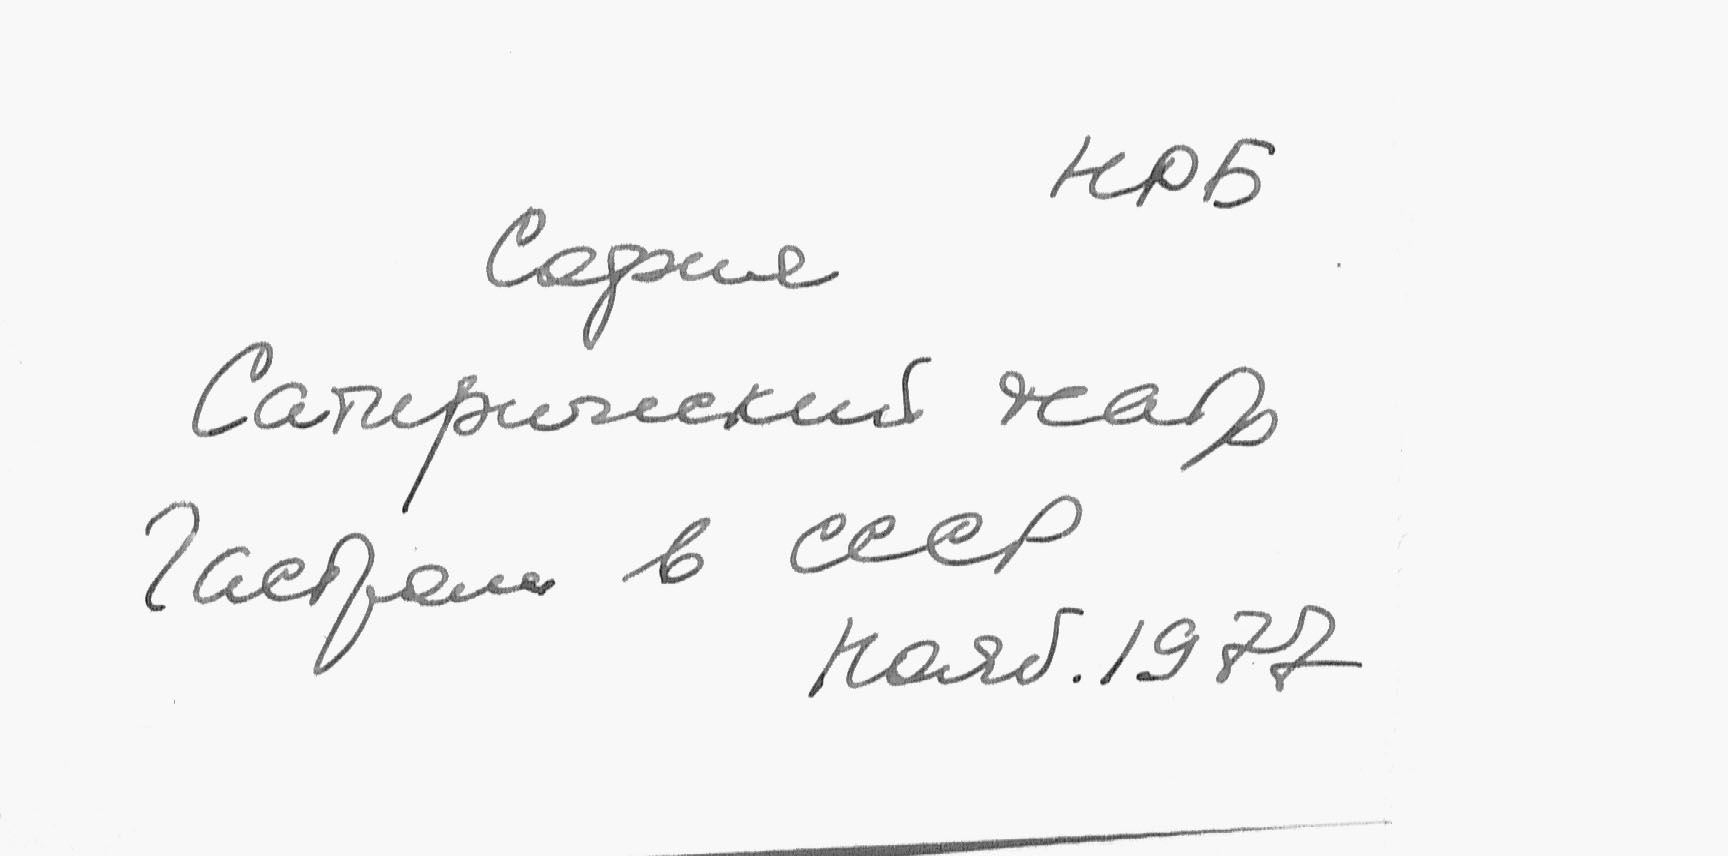 НРБ
София
Сатирический театр
Гастроли в СССР
нояб. 1977